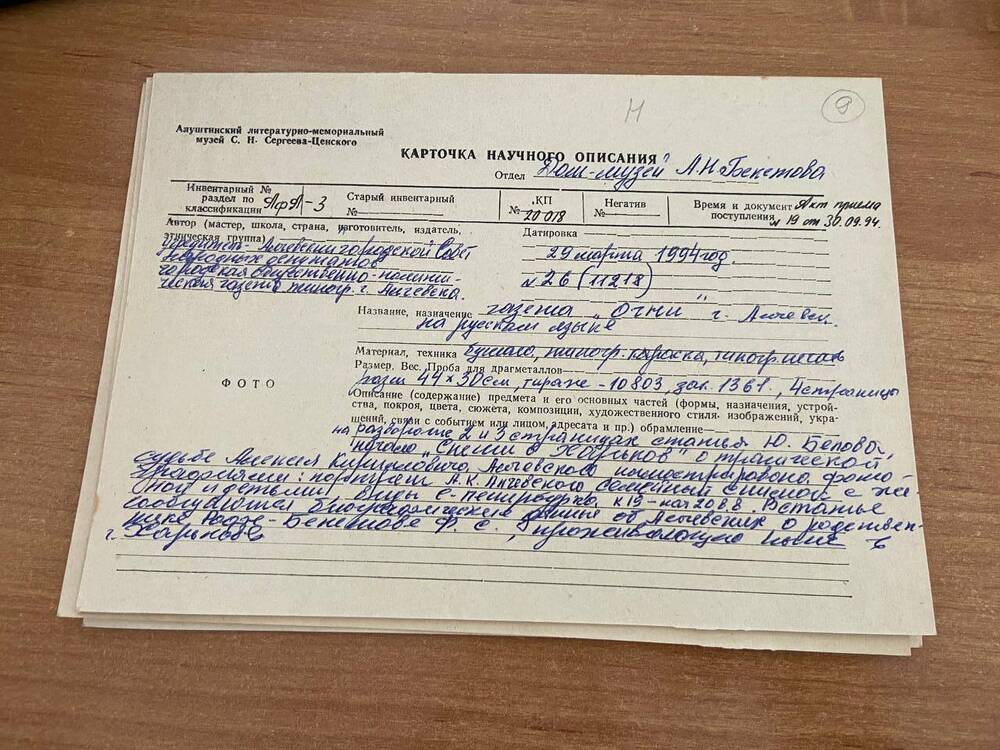 Н
9
Алуштинский литературно-мемориальный
музей С. Н. Сергеева-Ценского
КАРТОЧКА НАУЧНОГО ОПИСАНИЯ
Отдел Дом-музей А.Н. Бекетова
Инвентарный №
раздел по
классификации
-3
Старый инвентарный
№
КП
№ 20018
Негатив
№
Время и документ Акт приема
поступления № 19 от 30.09.94.
Автор (мастер, школа, страна, изготовитель, издатель,
этническая группа)
Учредитель - Алчевский городской Совет
народных депутатов
городская общественно-полити-
ческая газета типогр. г. Алчевска.
Датировка
29 марта 1994 год.
№ 26 (11218)
Название, назначение газета „Огни" г. Алчевск.
на русском языке
Материал, техника бумага, типогр. краска, типогр. печать
Размер. Вес. Проба для драгметаллов
разм 44×30 см, тираж - 10803, зак. 1361, 4 страницы
ФОТО
Описание (содержание) предмета и его основных частей (формы, назначения, устрой-
ства, покроя, цвета, сюжета, композиции, художественного стиля изображений, укра-
шений, связи с событием или лицом, адресата и пр.) обрамление
на развороте 2 и 3 страницах статья Ю. Белова,
начало о трагической
судьбе Алексея Кирилловича Алчевского иллюстрировано фото-
графиями: портрет А.К. Алчевского семейный снимок с же-
ной и детьми виды С-Петербурга к. 19 - нач 20 в.в. В статье
сообщаются биографические данные об Алчевских о родствен-
нике Ф. С., проживающию ныне в
г. Харькове